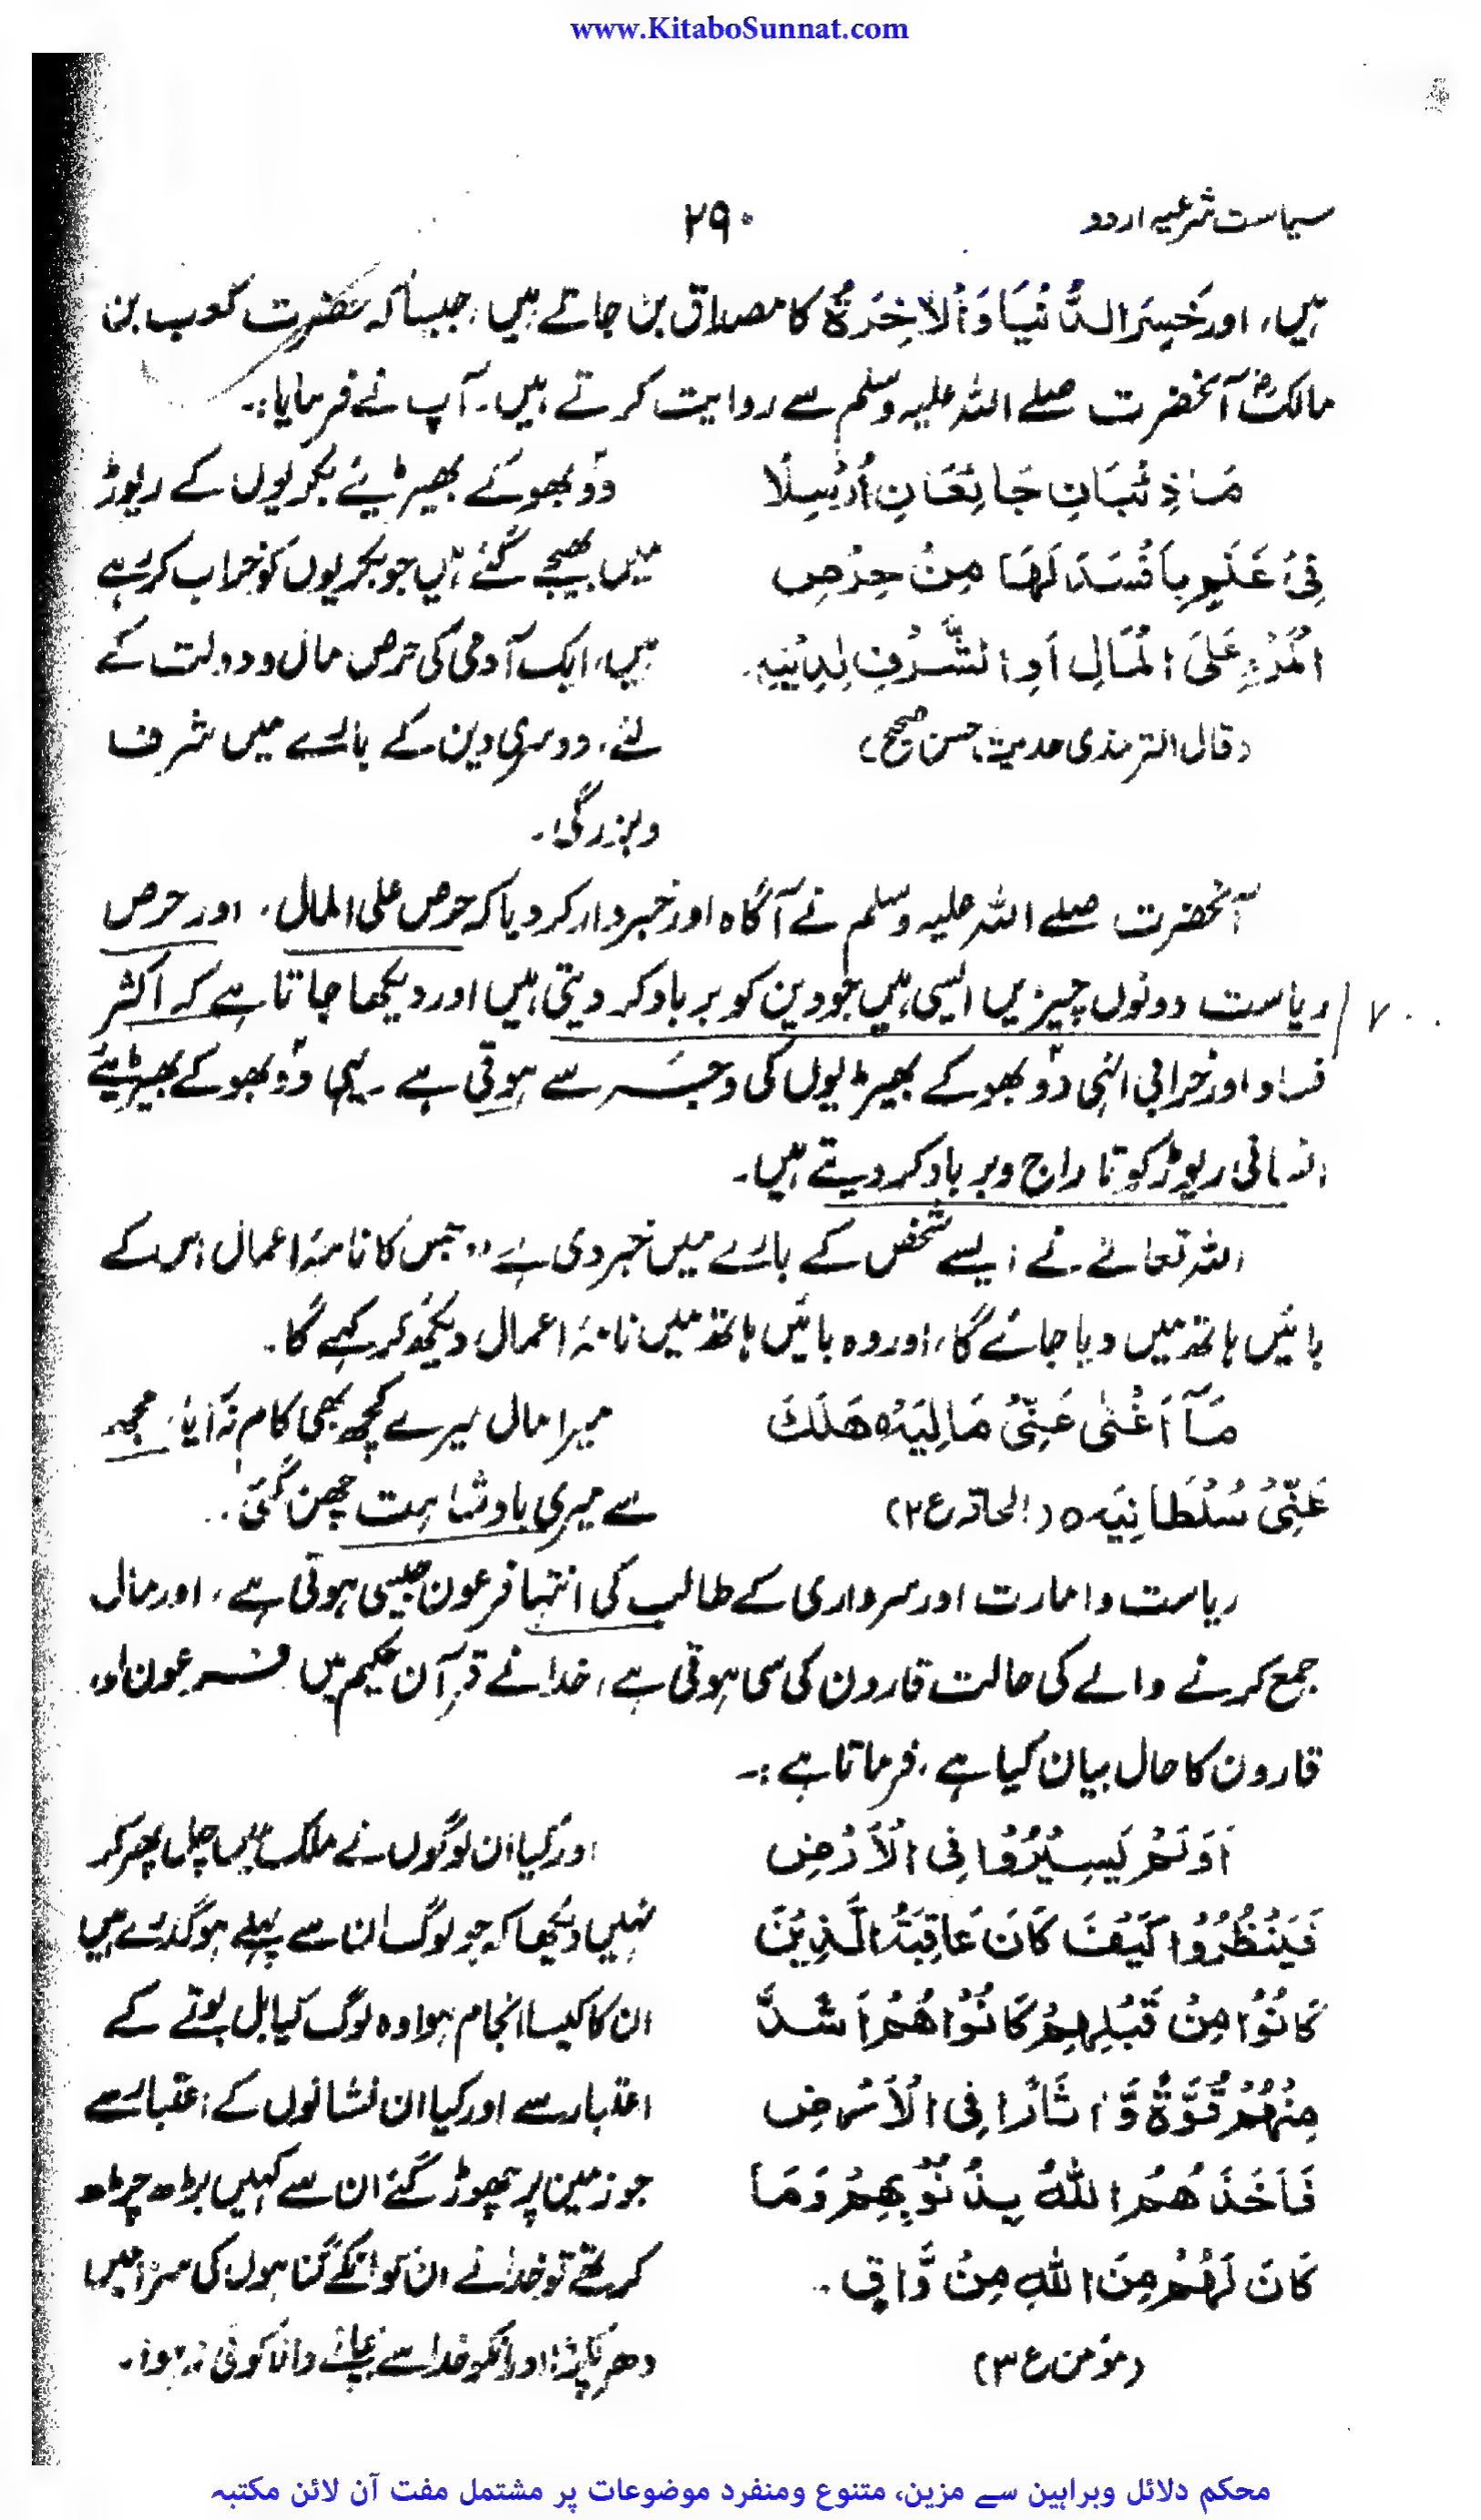 www.KitaboSunnat.com
سیاست شرعیہ اردو
۲۹۰
ہیں، اور خَسِرَ الدُّنْیَا وَالْاٰخِرَۃُ کا مصداق بن جاتے ہیں، جیسا کہ حضرت کعب بن
مالکؓ آنحضرت صلے اللہ علیہ وسلم سے روایت کرتے ہیں۔ آپ نے فرمایا:۔
مَا ذِئْبَانِ جَائِعَانِ اُرْسِلَا
فِیْ غَنَمٍ بِاَفْسَدَ لَھَا مِنْ حِرْصِ
الْمَرْءِ عَلَی الْمَالِ اَوِ الشَّرَفِ لِدِیْنِہٖ۔
(قال الترمذی حدیث حسن صحیح)
دوبھوکے بھیڑیئے بکریوں کے ریوڑ
میں بھیجے گئے ہیں جو بکریوں کو خراب کر رہے
ہیں، ایک آدمی کی حرص مال و دولت کے
لئے، دوسری دین کے بارے میں شرف
وبزرگی۔
آنحضرت صلے اللہ علیہ وسلم نے آگاہ اور خبردار کر دیا کہ حرص علی المال، اور حرص
ریاست دونوں چیزیں ایسی ہیں جو دین کو برباد کر دیتی ہیں اور دیکھا جاتا ہے کہ اکثر
فساد اور خرابی انہی دوبھوکے بھیڑیوں کی وجہ سے ہوتی ہے۔ یہی دوبھوکے بھیڑیئے
انسانی ریوڑ کو تاراج و برباد کر دیتے ہیں۔
اللہ تعالےٰ نے ایسے شخص کے بارے میں خبر دی ہے،، جس کا نامۂ اعمال اس کے
بائیں ہاتھ میں دیا جائے گا، اور وہ بائیں ہاتھ میں نامۂ اعمال دیکھ کر کہے گا۔
مَآ اَغْنٰی عَنِّیْ مَالِیَہْ ہ ھَلَکَ
عَنِّیْ سُلْطَانِیَہْ ہ (الحاقہ ع ۲)
میرا مال میرے کچھ بھی کام نہ آیا، مجھ
سے میری بادشاہت چھن گئی۔
ریاست و امارت اور سرداری کے طالب کی انتہا فرعون جیسی ہوتی ہے، اور مال
جمع کرنے والے کی حالت قارون کی سی ہوتی ہے، خدا نے قرآن حکیم میں فرعون اور
قارون کا حال بیان کیا ہے، فرماتا ہے:۔
اَوَلَمْ یَسِیْرُوْا فِی الْاَرْضِ
فَیَنْظُرُوْا کَیْفَ کَانَ عَاقِبَۃُ الَّذِیْنَ
کَانُوْا مِنْ قَبْلِھِمْ کَانُوْا ھُمْ اَشَدَّ
مِنْھُمْ قُوَّۃً وَّاٰثَارًا فِی الْاَرْضِ
فَاَخَذَ ھُمُ اللّٰہُ بِذُنُوْبِھِمْ وَمَا
کَانَ لَھُمْ مِنَ اللّٰہِ مِنْ وَّاقٍ۔
(مومن ع ۳)
اور کیا ان لوگوں نے ملک میں چل پھر کر
نہیں دیکھا کہ جو لوگ ان سے پہلے ہو گذرے ہیں
ان کا کیسا انجام ہوا وہ لوگ کیا بل بوتے کے
اعتبار سے اور کیا ان نشانوں کے اعتبار سے
جو زمین پر چھوڑ گئے ان سے کہیں بڑھ چڑھ
کر تھے تو خدا نے ان کو انکے گناہوں کی سزا میں
دھر پکڑا اور انکو خدا سے بچانے والا کوئی نہ ہوا۔
محکم دلائل وبراہین سے مزین، متنوع ومنفرد موضوعات پر مشتمل مفت آن لائن مکتبہ